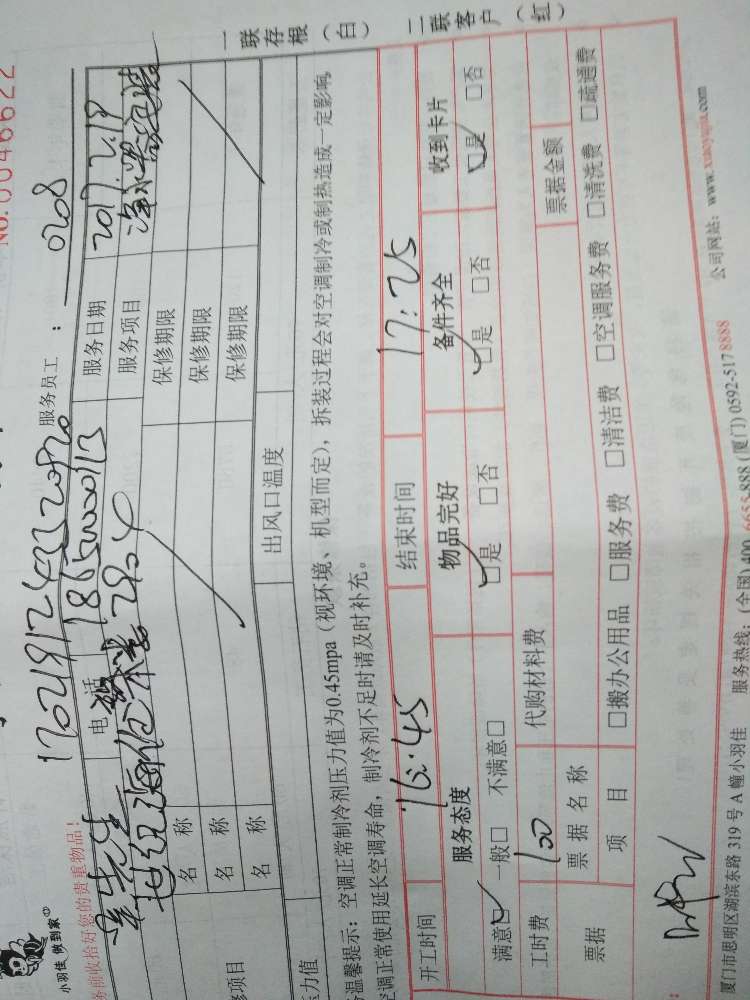 小羽佳 做到家
NO.0046622
务前收拾好您的贵重物品!
服务员工：0208
先生
电话
服务日期 2017.2.19
2804
服务项目 净水器
名称 保修期限
名称 保修期限
名称 保修期限
修项目
压力值 出风口温度
温馨提示：空调正常制冷剂压力值为0.45mpa（视环境、机型而定），拆装过程会对空调制冷或制热造成一定影响
空调正常使用延长空调寿命，制冷剂不足时请及时补充。
一联存根（白） 二联客户（红）
开工时间 16:45 结束时间 17:25
服务态度 物品完好 备件齐全 收到卡片
满意□ 一般□ 不满意□ □是 □否 □是 □否 □是 □否
工时费 100 代购材料费
票据 票据名称 票据金额
项目 □搬办公用品 □服务费 □清洁费 □空调服务费 □清洗费 □疏通费
厦门市思明区湖滨东路 319 号 A 幢小羽佳 服务热线：(全国) 400 6655 888 (厦门) 0592-517 8888 公司网站：www.xiaoyujia.com